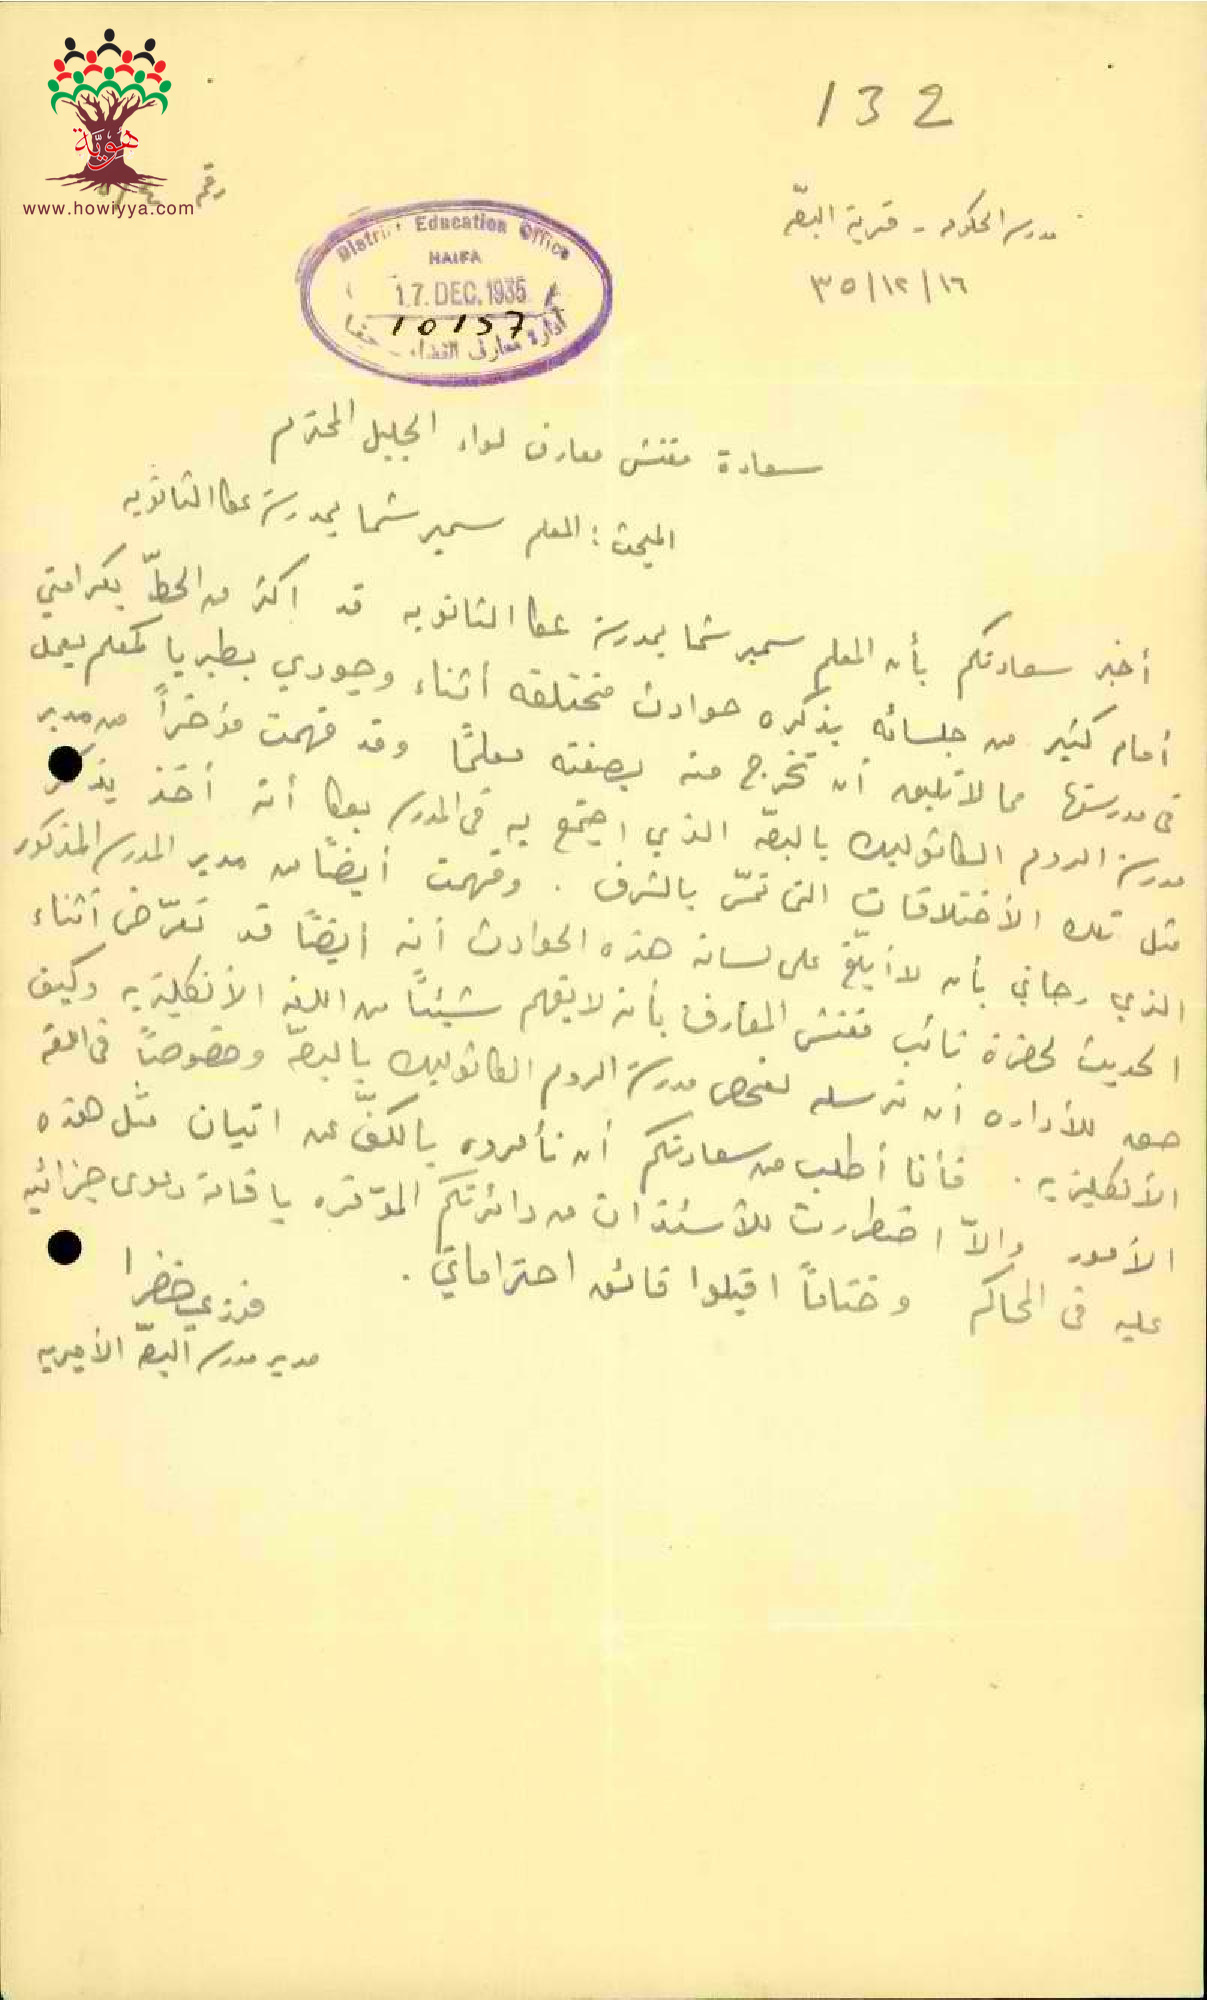 132
هويّة
www.howiyya.com
رقم
مدرسة الحكومة - قرية البصّة
١٦/١٢/٣٥
District Education Office
HAIFA
17. DEC. 1935
10157
ادارة معارف القضاء - حيفا
سعادة مفتش معارف لواء الجليل المحترم
المبحث: المعلم سمير شما بمدرسة عكا الثانويه
أخبر سعادتكم بأن المعلم سمير شما بمدرسة عكا الثانويه قد اكثر من الحطّ بكرامتي
أمام كثير من جلسائه بذكره حوادث مختلقه أثناء وجودي بطبريا كمعلم يعمل
في مدرستها مما لا تليق أن تخرج منه بصفته معلمًا وقد فهمت مؤخراً من مدير
مدرسة الروم الكاثوليك بالبصّه الذي اجتمع به في المدرسة بعكا أنه أخذ يذكر
مثل تلك الأختلاقات التي تمسّ بالشرف . وفهمت أيضًا من مدير المدرسة المذكور
الذي رجاني بأن لا أبلّغ على لسانه هذه الحوادث أنه ايضًا قد تعرّض أثناء
الحديث لحضرة نائب مفتش المعارف بأنه لا يفهم شيئًا من اللغه الأنكليزيه وكيف
حق للأداره أن ترسله لفحص مدرسة الروم الكاثوليك بالبصّه وخصوصًا في اللغه
الأنكليزيه . فأنا أطلب من سعادتكم أن تأمروه بالكفّ عن اتيان مثل هذه
الأمور والاّ اضطررت للأستئذان من دائرتكم الموقره باقامة دعوى جزائيه
عليه في المحاكم وختامًا اقبلوا فائق احتراماتي .
فوزي خضرا
مدير مدرسة البصّه الأميريه